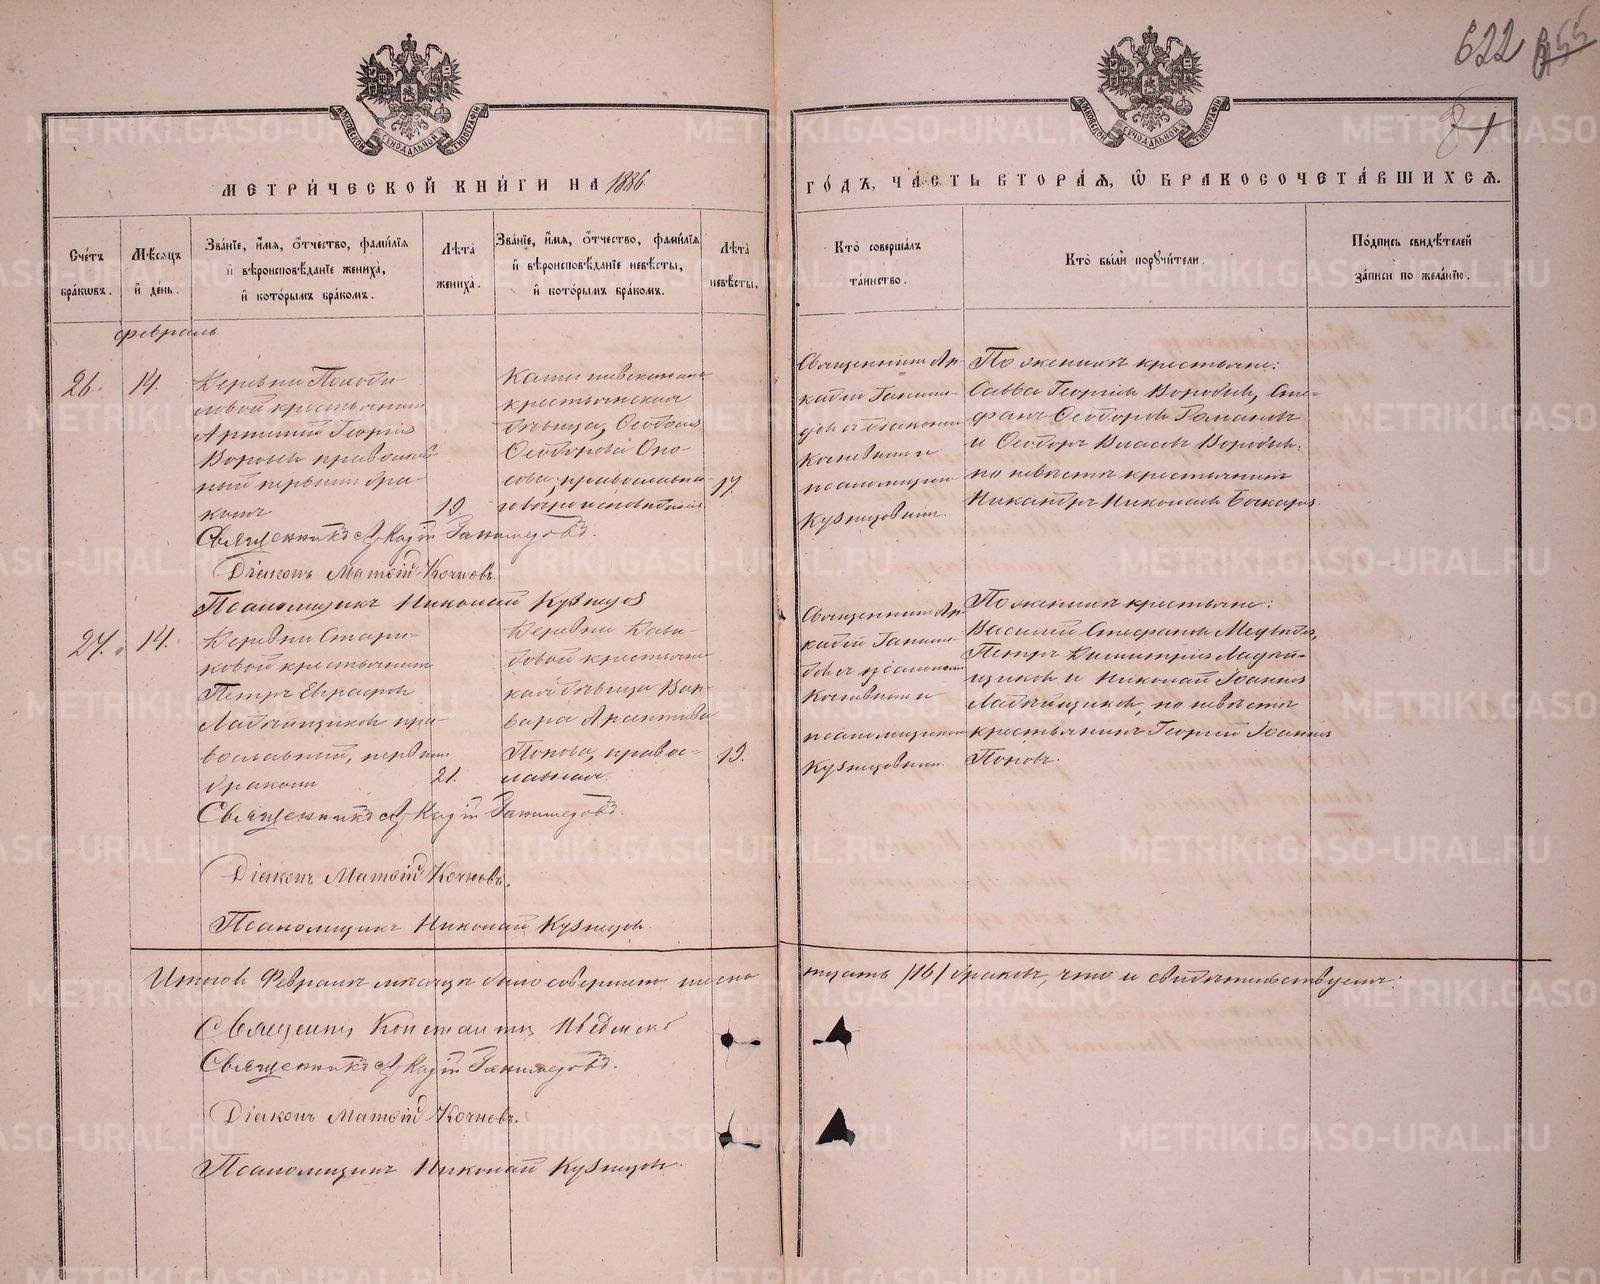 622
МОСКОВСКОЙ СѴНОДАЛЬНОЙ ТИПОГРАФІИ
МОСКОВСКОЙ СѴНОДАЛЬНОЙ ТИПОГРАФІИ
МЕТРИ́ЧЕСКОЙ КНИ́ГИ НА 1886
ГО́ДЪ, ЧА́СТЬ ВТОРА́Ѧ, Ѽ БРАКОСОЧЕТА́ВШИХСѦ.
Сче́тъ бра́кѡвъ.
Мѣ́сяцъ и҆ де́нь.
Зва́нїе, и҆́мѧ, ѻ҆́тчество, фами́лїѧ и҆ вѣроисповѣ́данїе жениха̀, и҆ кото́рымъ бра́комъ.
Лѣ́та жениха̀.
Зва́нїе, и҆́мѧ, ѻ҆́тчество, фами́лїѧ и҆ вѣроисповѣ́данїе невѣ́сты, и҆ кото́рымъ бра́комъ.
Лѣ́та невѣ́сты.
Кто̀ соверша́лъ та́инство.
Кто̀ бы́ли порꙋчи́тели.
По́дпись свидѣ́телей за́писи по жела́нїю.
Февраль
26.
14.
Деревни
ловой крестьянинъ
Георгіевъ
православ-
ный первымъ бра-
комъ
19
крестьянская
дѣвица, Ѳеодосія
Ѳеодорова
православна-
го вѣроисповѣданія
17.
Священникъ Ар-
кадій Ганиме-
довъ съ діакономъ
Кочневымъ и
псаломщикомъ
Кузнецовымъ.
По женихѣ крестьяне:
Савва Георгіевъ Воробьевъ, Сте-
фанъ Ѳеодоровъ
и Ѳеодоръ Власовъ Воробьевъ,
по невѣстѣ крестьянинъ
Никандръ Николаевъ
Священникъ Аркадій Ганимедовъ.
Діаконъ Матѳій Кочневъ.
Псаломщикъ Николай Кузнецовъ
27.
14.
Деревни Стари-
ковой крестьянинъ
Петръ Евграфовъ
Ладейщиковъ пра-
вославный, первымъ
бракомъ
21.
Деревни Давы-
довой крестьянс-
кая дѣвица Вар-
вара
Попова, правос-
лавная.
19.
Священникъ Ар-
кадій Ганиме-
довъ съ діакономъ
Кочневымъ и
псаломщикомъ
Кузнецовымъ.
По женихѣ крестьяне:
Василій Стефановъ Медвѣдевъ,
Петръ Димитріевъ Ладей-
щиковъ и Николай Іоанновъ
Ладейщиковъ, по невѣстѣ
крестьянинъ Георгій Іоанновъ
Поповъ.
Священникъ Аркадій Ганимедовъ.
Діаконъ Матѳій Кочневъ.
Псаломщикъ Николай Кузнецовъ.
Итого въ Февралѣ мѣсяцѣ было совершено шестнадцать /16/ браковъ, что и свидѣтельствуемъ:
Священникъ Константинъ
Священникъ Аркадій Ганимедовъ.
Діаконъ Матѳій Кочневъ.
Псаломщикъ Николай Кузнецовъ.
METRIKI.GASO-URAL.RU